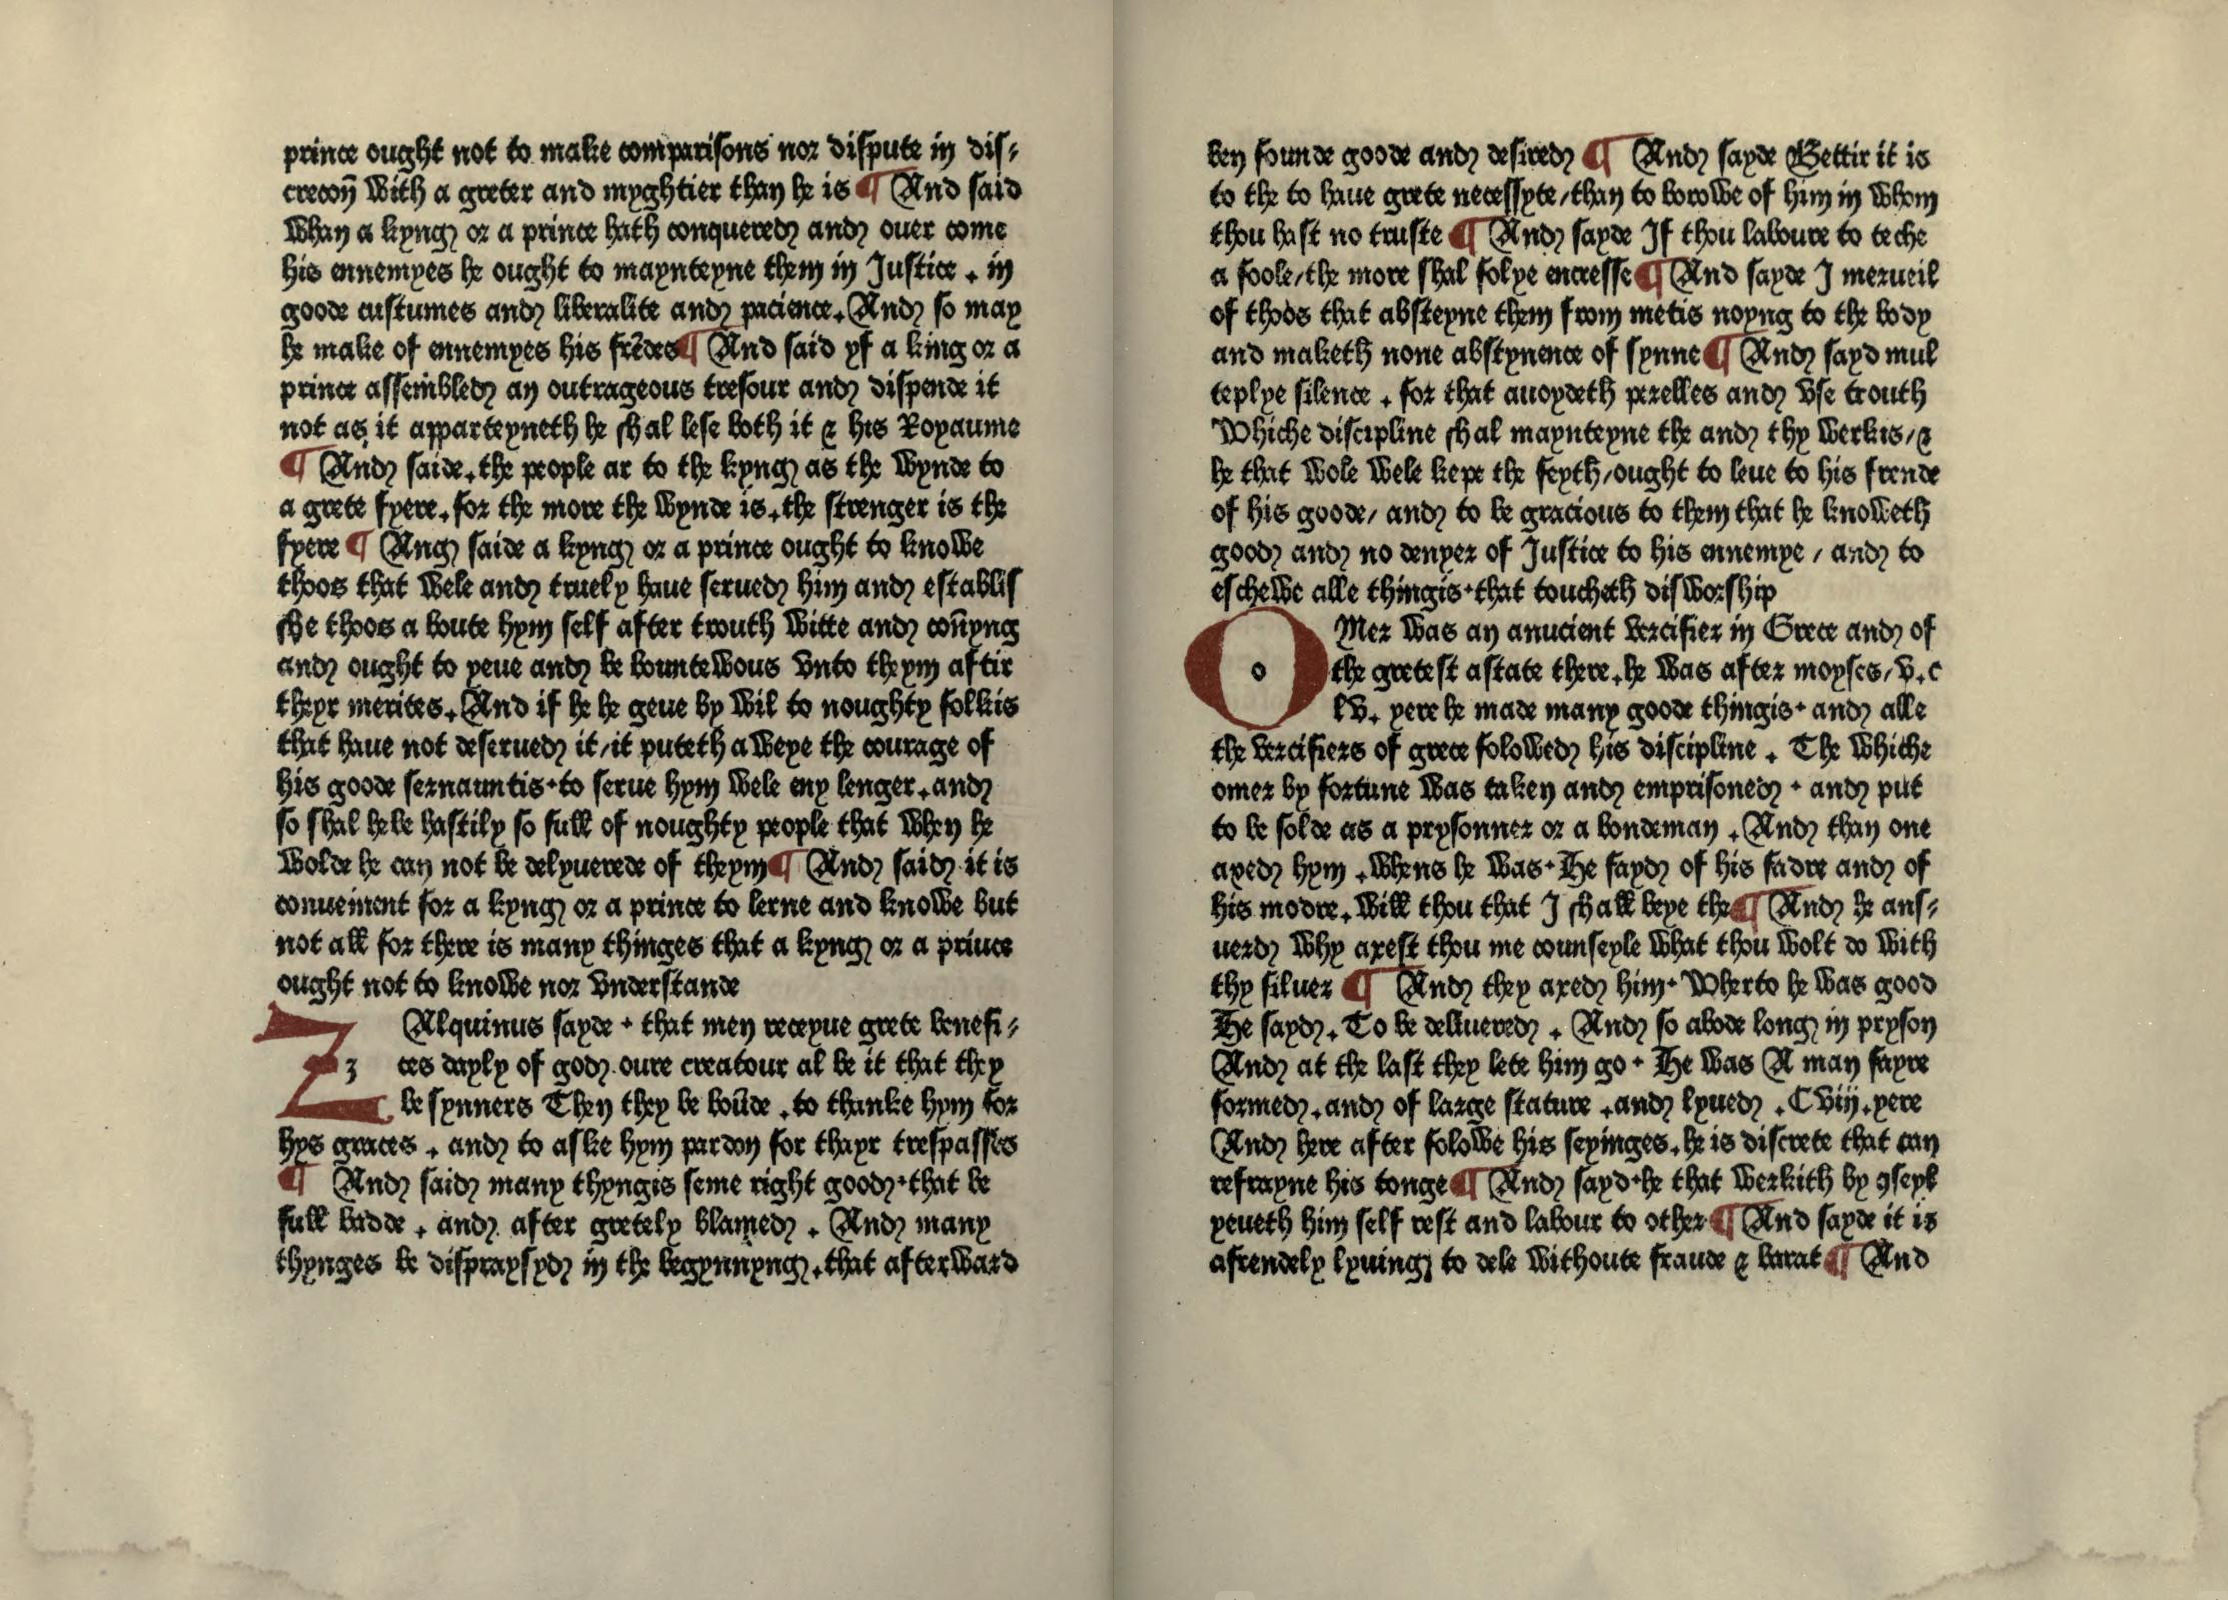 prince ought not to make comparisons nor dispute in dis⸗
crecon̄ with a greter and myghtier than he is ¶ And said
Whan a kyng or a prince hath conquered and ouer come
his ennemyes he ought to maynteyne them in Justice . in
goode custumes and liberalite and pacience. And so may
he make of ennemyes his frēdes ¶ And said yf a king or a
prince assembled an outrageous tresour and dispende it
not as it apparteyneth he shal lese both it & his Royaume
¶ And saide. the people ar to the kyng as the wynde to
a grete fyere. for the more the wynde is. the strenger is the
fyere ¶ Ang saide a kyng or a prince ought to knowe
thoos that wele and truely haue serued him and establis
she thoos a boute hym self after trouth witte and coñyng
and ought to yeue and be bounteuous vnto theym aftir
theyr merites. And if he he geue by wil to noughty folkis
that haue not deserued it/it puteth a weye the courage of
his goode sernauntis·to serue hym wele eny lenger. and
so shal he be hastily so full of noughty people that when he
wolde he can not be delyuerede of theym ¶ And said it is
conuenient for a kyng or a prince to lerne and knowe but
not all for there is many thinges that a kyng or a prince
ought not to knowe nor vnderstande
Z z Alquinus sayde · that men receyue grete benefi⸗
ces dayly of god oure creatour al be it that they
be synners Then they be boūde . to thanke hym for
hys graces . and to aske hym pardon for thayr trespasses
¶ And said many thyngis seme right good·that be
full badde . and after gretely blamed . And many
thynges be dispraysyd in the begynnyng. that afterward
ben founde goode and desired ¶ And sayde Bettir it is
to the to haue grete necessyte/than to borowe of him in whom
thou hast no truste ¶ And sayde If thou laboure to teche
a foole/the more shal folye encresse ¶ And sayde J merueil
of thoos that absteyne them from metis noyng to the body
and maketh none abstynence of synne ¶ And sayd mul
teplye silence . for that auoydeth perelles and vse trouth
Whiche discipline shal maynteyne the and thy werkis/&
he that wole wele kepe the feyth/ought to leue to his frende
of his goode/ and to be gracious to them that he knoweth
good and no denyer of Justice to his ennemye / and to
eschewe alle thingis·that toucheth disworship
O o Mer was an anucient vercifier in Grece and of
the gretest astate there. he was after moyses/v. c
lv. yere he made many goode thingis· and alle
the vercifiers of grece folowed his discipline . The whiche
omer by fortune was taken and emprisoned · and put
to be solde as a prysonner or a bondeman . And than one
axed hym . whens he was· He sayd of his fadre and of
his modre. Will thou that J shall beye the ¶ And he ans⸗
uerd why axest thou me counseyle what thou wolt do with
thy siluer ¶ And they axed him· Wherto he was good
He sayd. To be deliuered . And so abode long in pryson
And at the last they lete him go · He was A man fayre
formed. and of large stature . and lyued . Cviij. yere
And here after folowe his seyinges. he is discrete that can
refrayne his tonge ¶ And sayd·he that werkith by ꝯseyl
yeueth him self rest and labour to other ¶ And sayde it is
afrendely lyuing to dele withoute fraude & barat ¶ And